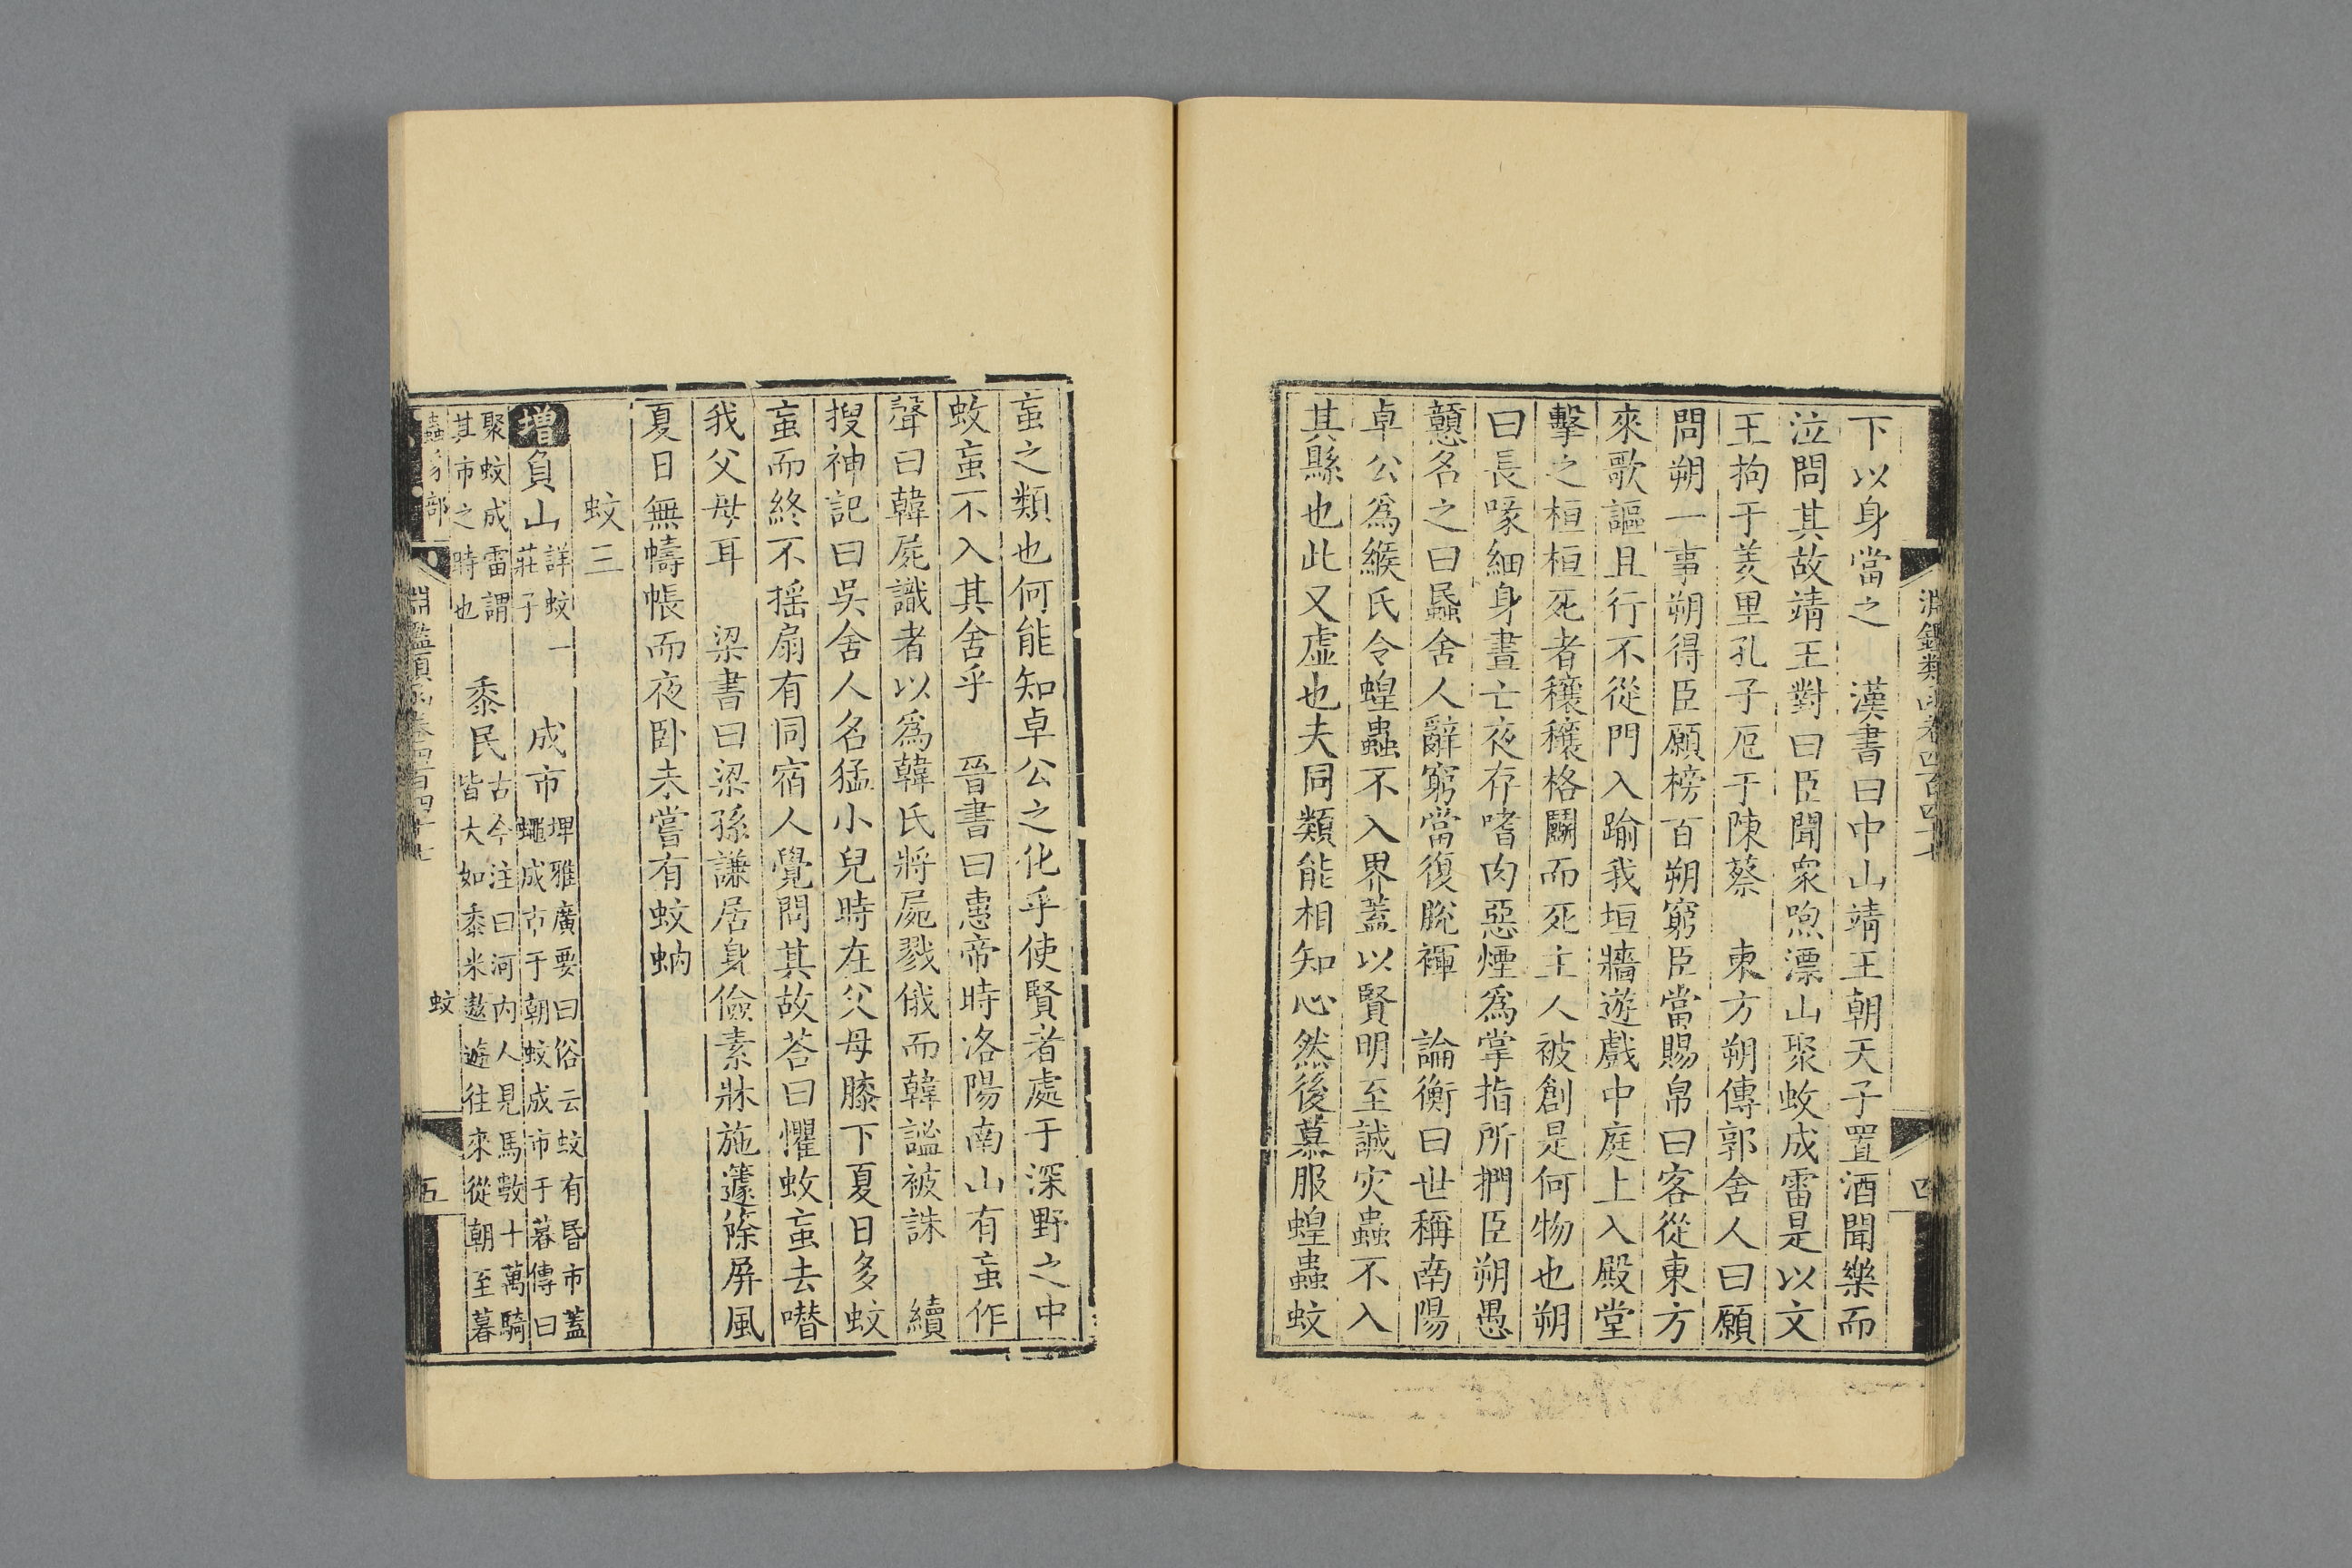 下以身當之　漢書曰中山靖王朝天子置酒聞樂而
泣問其故靖王對曰臣聞衆喣漂山聚蚊成雷是以文
王拘于羑里孔子厄于陳蔡　東方朔傳郭舍人曰願
問朔一事朔得臣願榜百朔窮臣當賜帛曰客從東方
來歌謳且行不從門入踰我垣牆遊戲中庭上入殿堂
擊之桓桓死者穰穰格鬭而死主人被創是何物也朔
曰長喙細身晝亡夜存嗜肉惡煙爲掌指所捫臣朔愚
戇名之曰蟁舍人辭窮當復脫褌　論衡曰世稱南陽
卓公爲緱氏令蝗蟲不入界蓋以賢明至誠灾蟲不入
其縣也此又虛也夫同類能相知心然後慕服蝗蟲蚊
蝱之類也何能知卓公之化乎使賢者處于深野之中
蚊蝱不入其舍乎　晉書曰惠帝時洛陽南山有蝱作
聲曰韓屍識者以爲韓氏將屍戮俄而韓謐被誅　續
搜神記曰吳舍人名猛小兒時在父母膝下夏日多蚊
蝱而終不揺扇有同宿人覺問其故荅曰懼蚊蝱去噆
我父母耳　梁書曰梁孫謙居身儉素牀施蘧篨屏風
夏日無幬帳而夜卧未嘗有蚊蚋
蚊三
增負山詳蚊一莊子　成市埤雅廣要曰俗云蚊有昏市蓋蠅成市于朝蚊成市于暮傳曰
聚蚊成雷謂其市之時也　黍民古今注曰河内人見馬數十萬騎皆大如黍米遨遊往來從朝至暮
淵鑑類函卷四百四十七
四
蟲豸部
淵鑑類函卷四百四十七
蚊
五